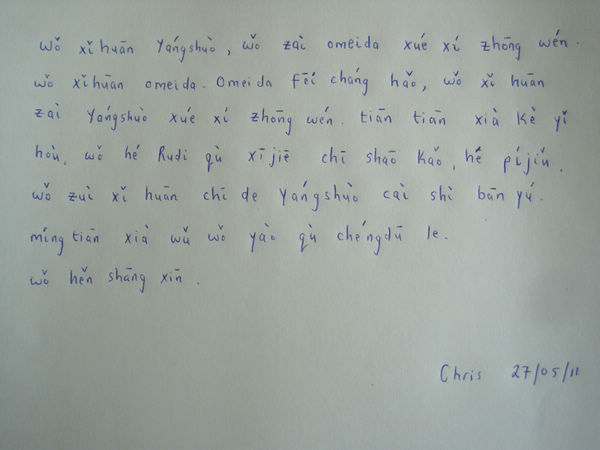 wǒ xǐhuān Yángshuò, wǒ zaì omeida xué xí zhōng wén.
wǒ xǐhuān omeida. Omeida Fēi cháng hǎo, wǒ xǐ huān
zaì Yángshuò xué xí zhōng wén. tiān tiān xià kè yǐ
hòu, wǒ hé Rudi qù xī jiē chī shaō kǎo, hé píjiǔ.
wǒ zuì xǐ huān chī de yángshuò caì shì bān yú.
míng tiān xià wǔ wǒ yào qù chéngdū le.
wǒ hěn shāng xīn.
Chris 27/05/11